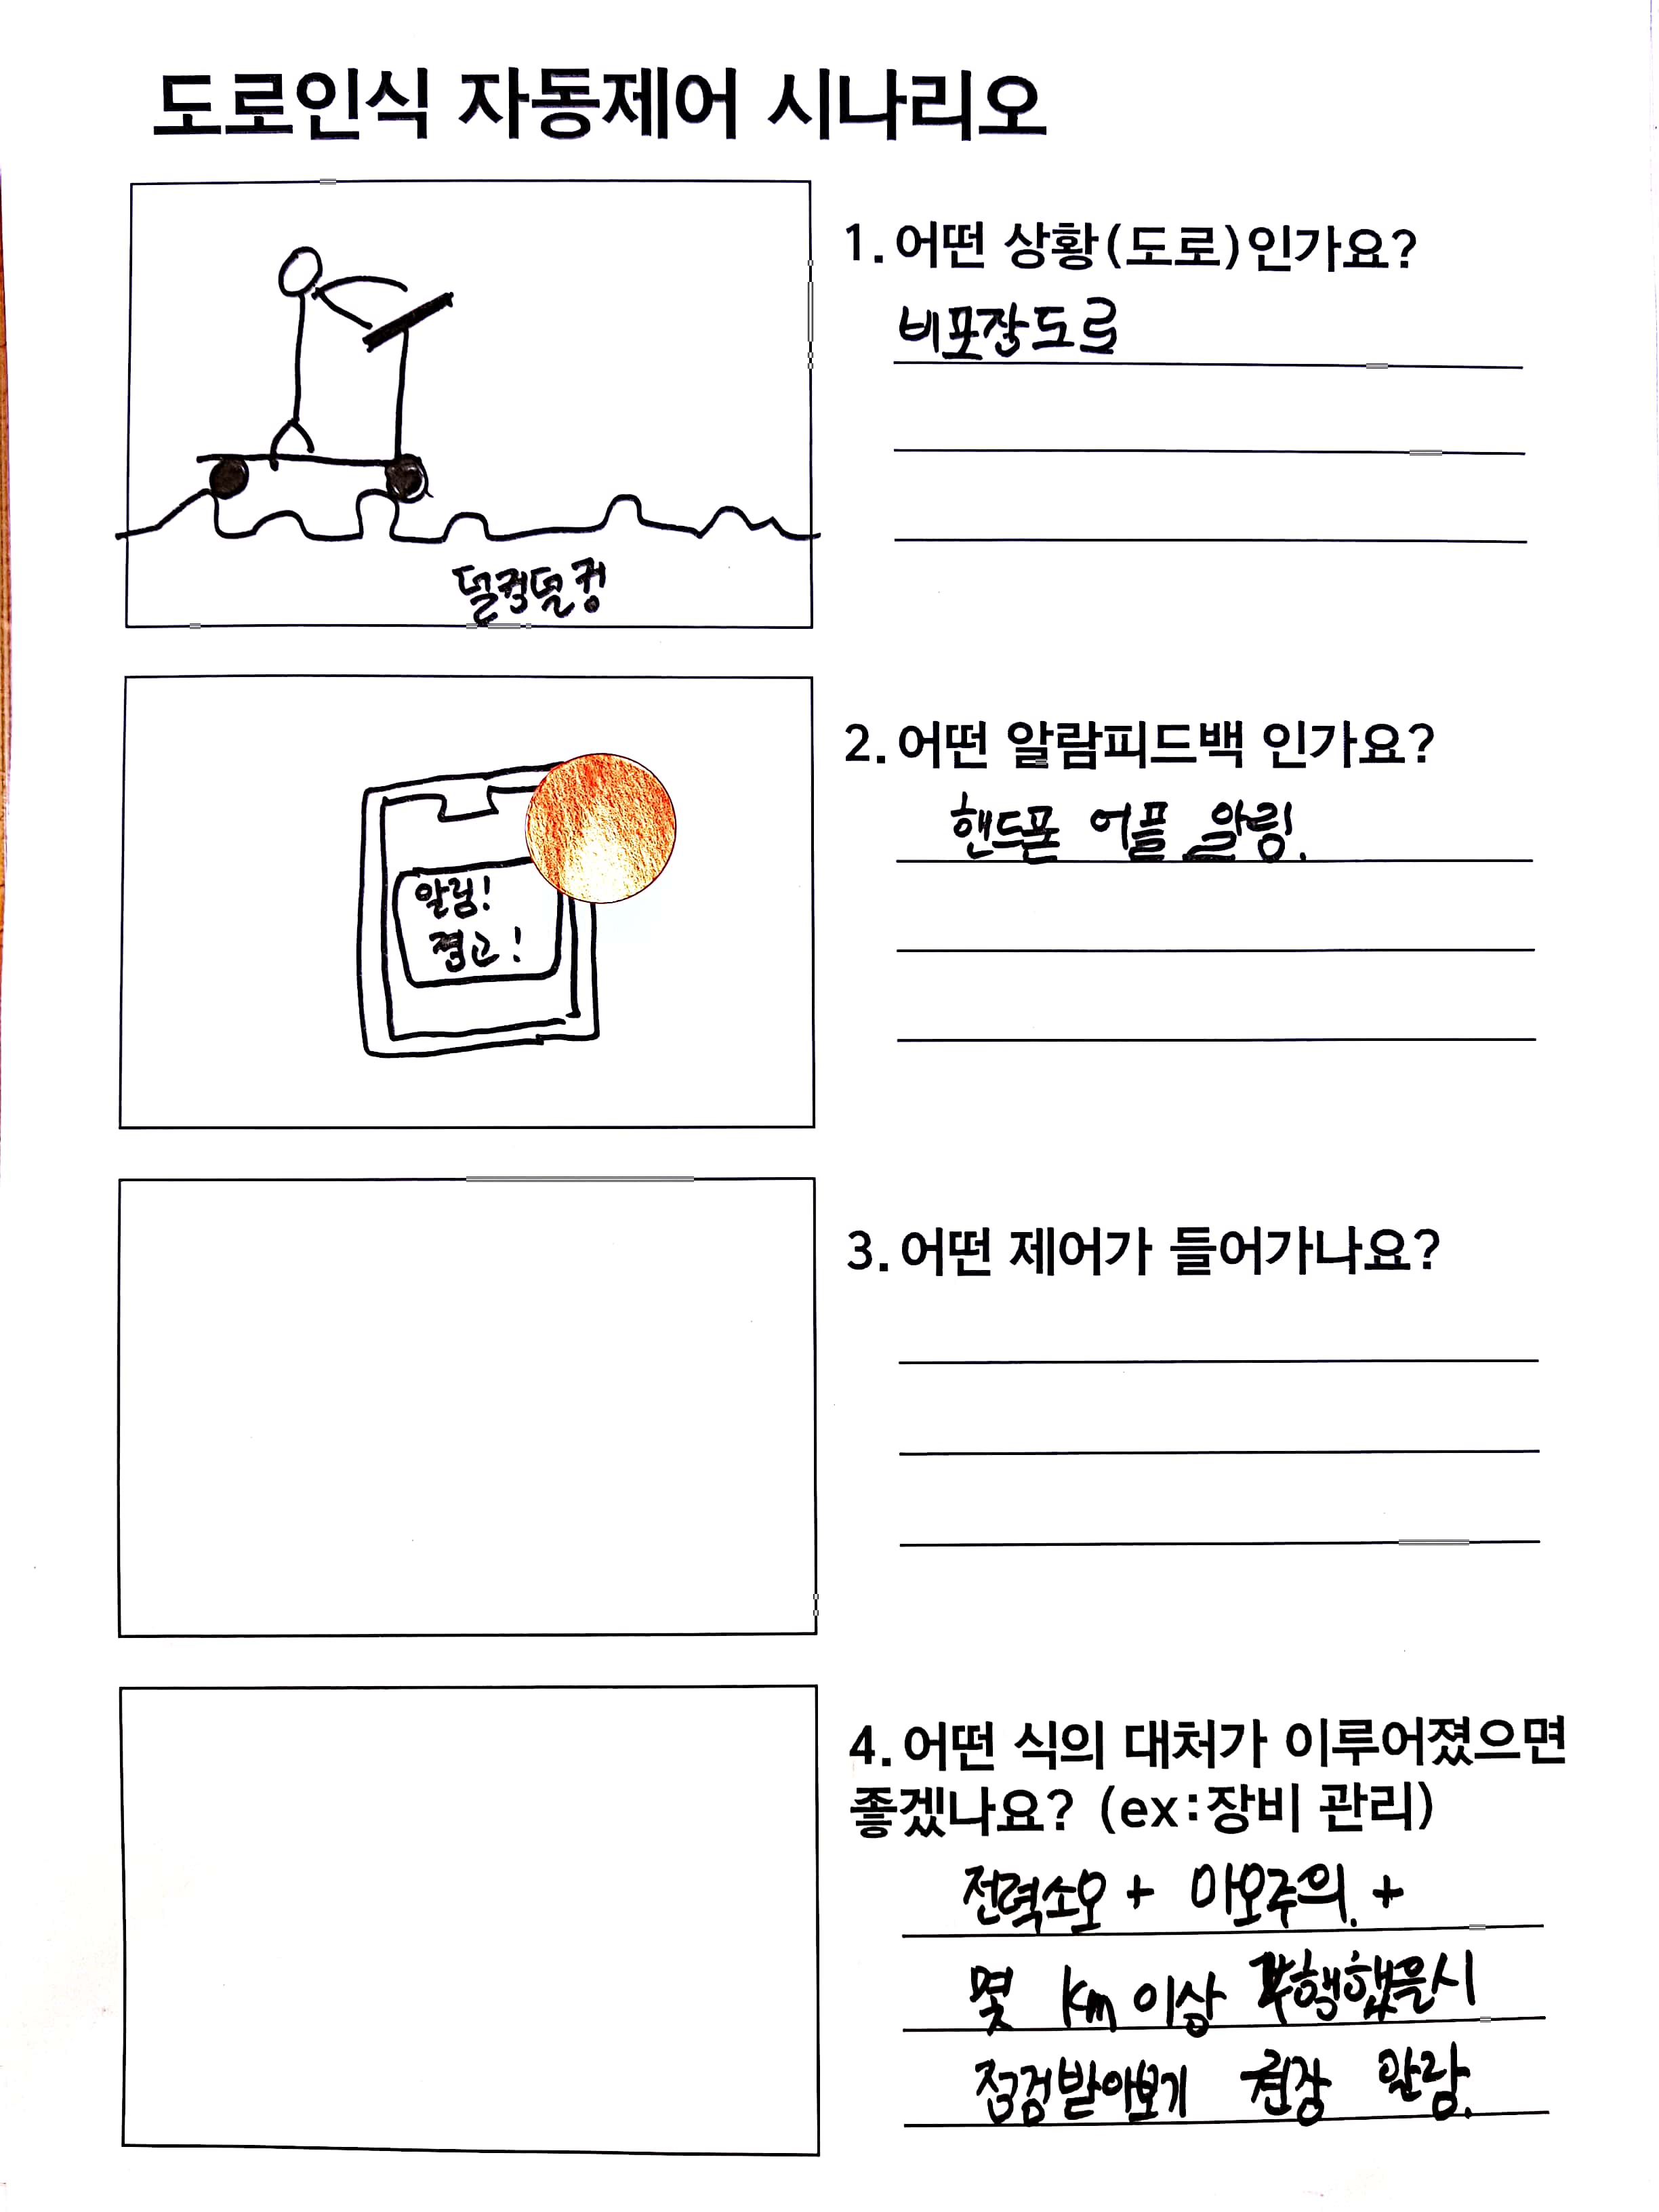 도로인식 자동제어 시나리오
1. 어떤 상황(도로)인가요?
비포장도로
덜컥덜컹
2. 어떤 알람피드백 인가요?
핸드폰 어플 알림.
알림!
경고!
3. 어떤 제어가 들어가나요?
4. 어떤 식의 대처가 이루어졌으면
좋겠나요? (ex:장비 관리)
전력소모 + 마모주의. +
몇 km 이상 주행했을시
점검받아보기 권장 알람.